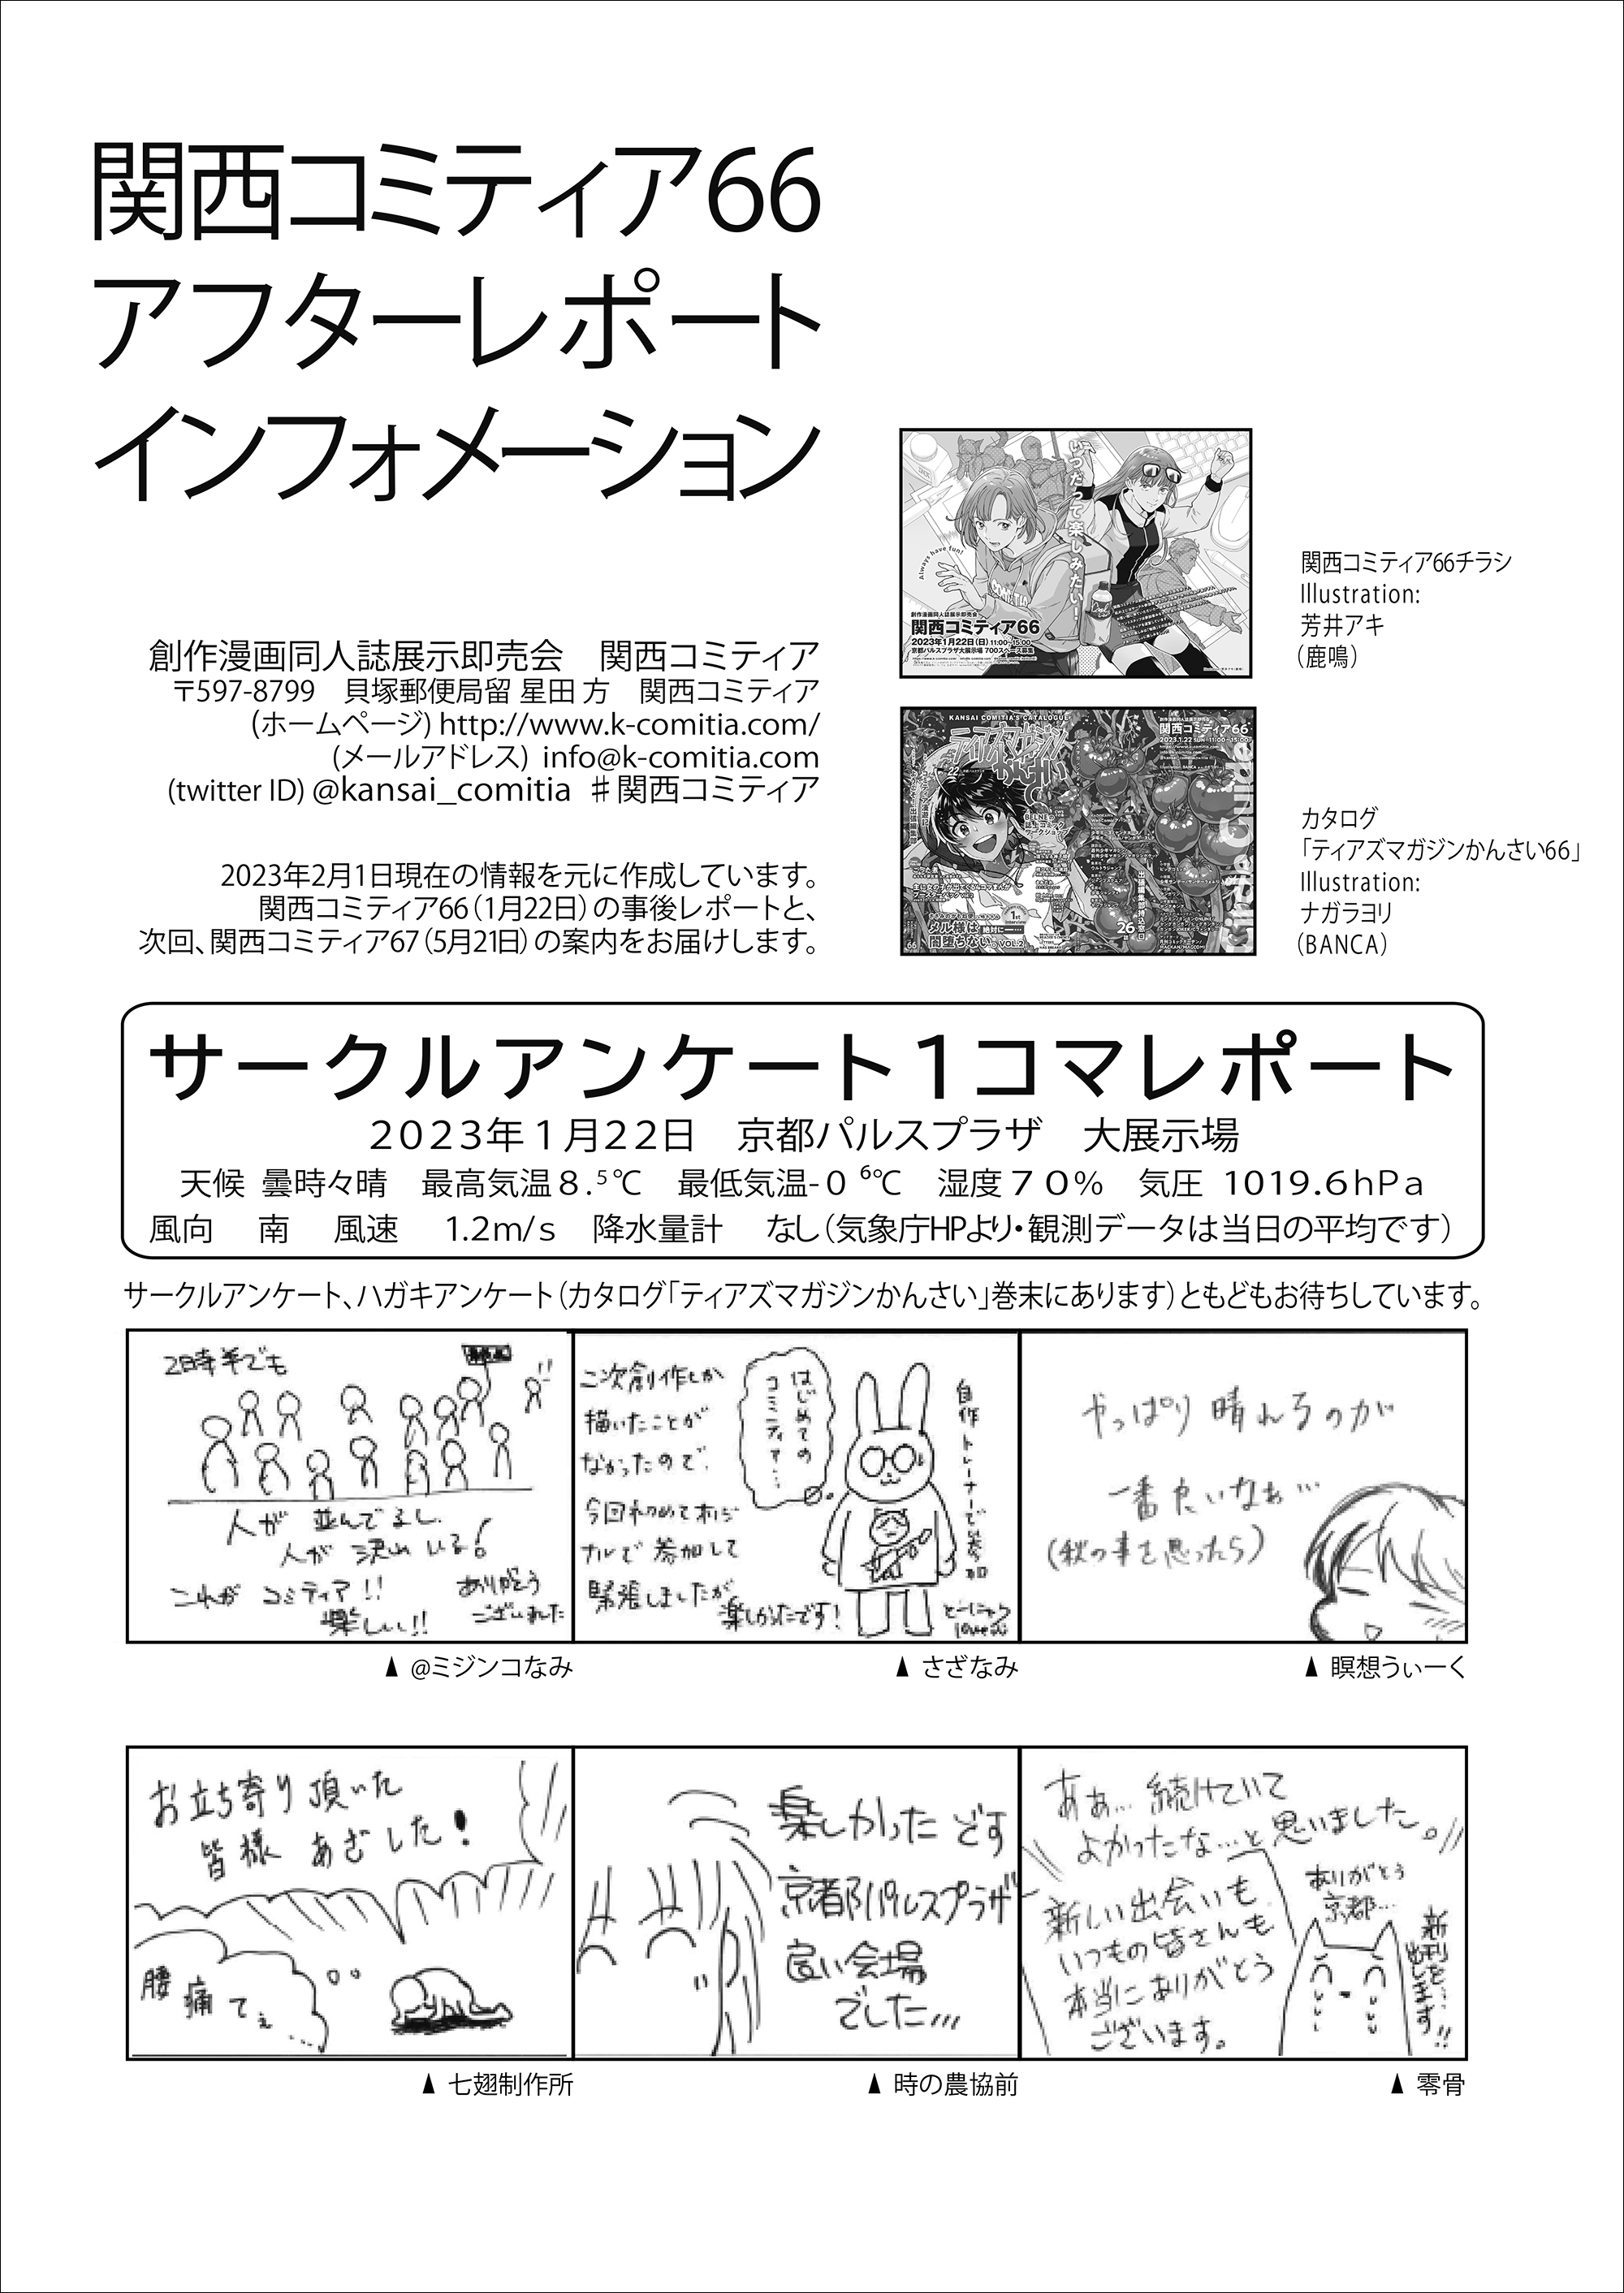 関西コミティア66
アフターレポート
インフォメーション
創作漫画同人誌展示即売会　関西コミティア
〒597-8799　貝塚郵便局留 星田 方　関西コミティア
(ホームページ) http://www.k-comitia.com/
(メールアドレス) info@k-comitia.com
(twitter ID) @kansai_comitia ♯関西コミティア
2023年2月1日現在の情報を元に作成しています。
関西コミティア66（1月22日）の事後レポートと、
次回、関西コミティア67（5月21日）の案内をお届けします。
いつだって楽しみたい！
Always have fun!
創作漫画同人誌展示即売会
関西コミティア66
2023年1月22日(日) 11:00~15:00
京都パルスプラザ大展示場 700スペース募集
関西コミティア66チラシ
Illustration:
芳井アキ
（鹿鳴）
KANSAI COMITIA'S CATALOGUE
ティアズマガジンかんさい
関西コミティア66
2023.1.22 SUN 11:00~15:00
メル様は
絶対に――…
闇堕ちない。VOL.2
カタログ
「ティアズマガジンかんさい66」
Illustration:
ナガラヨリ
（BANCA）
サークルアンケート１コマレポート
２０２３年１月２２日　京都パルスプラザ　大展示場
天候 曇時々晴　最高気温８.⁵℃　最低気温-０ ⁶℃　湿度７０％　気圧 1019.6hPa
風向　南　風速　1.2m/s　降水量計　なし（気象庁HPより・観測データは当日の平均です）
サークルアンケート、ハガキアンケート（カタログ「ティアズマガジンかんさい」巻末にあります）ともどもお待ちしています。
2時半でも
人が 並んでるし
人が 決め いる!
これが コミティア!!
楽しい!!
ありがとう
ございました
二次創作しか
描いたことが
なかったので、
今回初めてオリジ
ナルで 参加して
緊張しましたが
楽しかったです!
はじめての
コミティア…
自作トレーナーで参加
やっぱり 晴れるのが
一番良いなぁ…
(秋の事を思ったら)
▲ @ミジンコなみ
▲ さざなみ
▲ 瞑想うぃーく
お立ち寄り頂いた
皆様 あざした!
腰痛てぇ…
楽しかったどす
京都パルスプラザ
良い会場
でした…
ああ… 続けていて
よかったな…と思いました。
新しい出会いも
いつもの皆さんも
本当にありがとう
ございます。
ありがとう
京都…
新刊を…
出します!!
▲ 七翅制作所
▲ 時の農協前
▲ 零骨